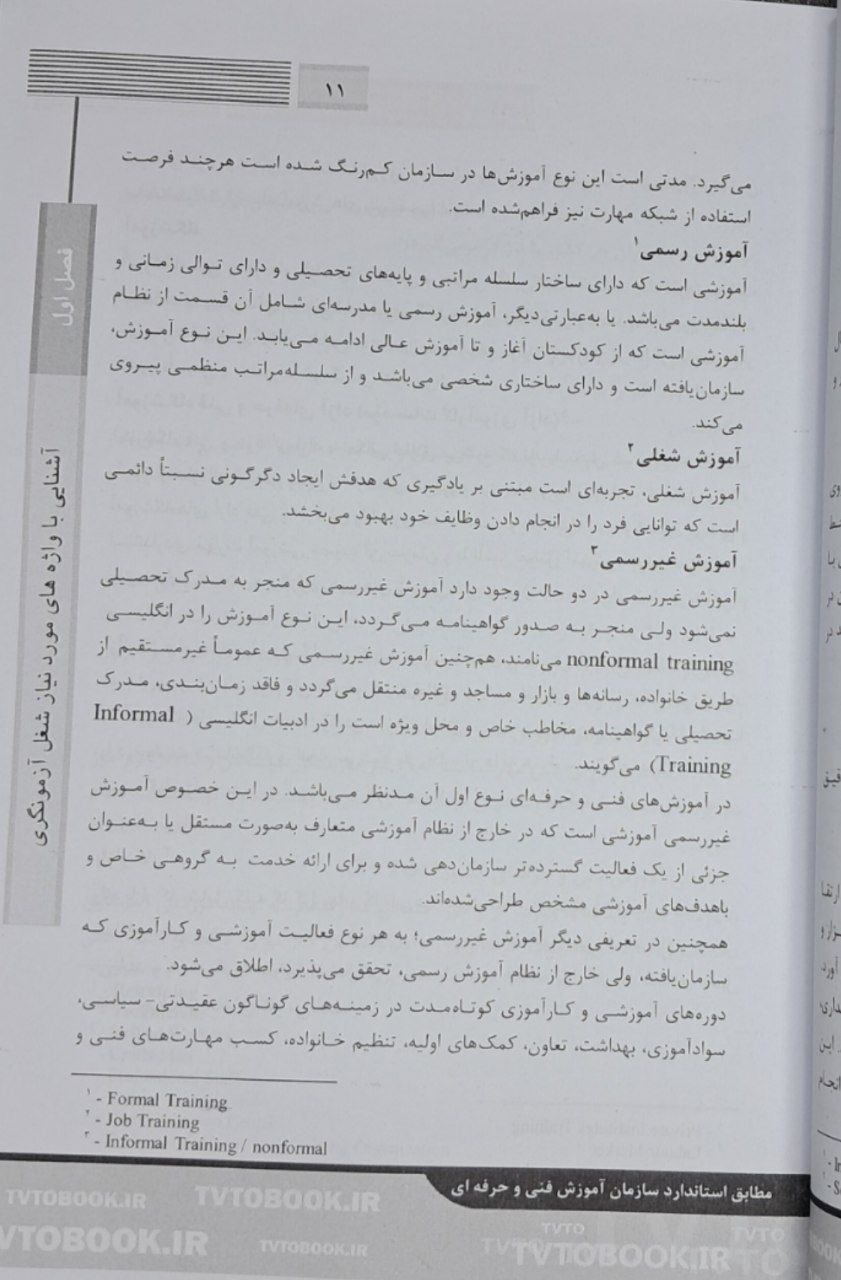 ۱۱
می‌گیرد. مدتی است این نوع آموزش‌ها در سازمان کم‌رنگ شده است هرچند فرصت
استفاده از شبکه مهارت نیز فراهم‌شده است.
آموزش رسمی۱
آموزشی است که دارای ساختار سلسله مراتبی و پایه‌های تحصیلی و دارای توالی زمانی و
بلندمدت می‌باشد. یا به‌عبارتی‌دیگر، آموزش رسمی یا مدرسه‌ای شامل آن قسمت از نظام
آموزشی است که از کودکستان آغاز و تا آموزش عالی ادامه می‌یابد. این نوع آموزش،
سازمان‌یافته است و دارای ساختاری شخصی می‌باشد و از سلسله‌مراتب منظمی پیروی
می‌کند.
آموزش شغلی۲
آموزش شغلی، تجربه‌ای است مبتنی بر یادگیری که هدفش ایجاد دگرگونی نسبتاً دائمی
است که توانایی فرد را در انجام دادن وظایف خود بهبود می‌بخشد.
آموزش غیررسمی۳
آموزش غیررسمی در دو حالت وجود دارد آموزش غیررسمی که منجر به مدرک تحصیلی
نمی‌شود ولی منجر به صدور گواهینامه می‌گردد، این نوع آموزش را در انگلیسی
nonformal training می‌نامند، هم‌چنین آموزش غیررسمی که عموماً غیرمستقیم از
طریق خانواده، رسانه‌ها و بازار و مساجد و غیره منتقل می‌گردد و فاقد زمان‌بندی، مدرک
تحصیلی یا گواهینامه، مخاطب خاص و محل ویژه است را در ادبیات انگلیسی ( Informal
Training) می‌گویند.
در آموزش‌های فنی و حرفه‌ای نوع اول آن مدنظر می‌باشد. در این خصوص آموزش
غیررسمی آموزشی است که در خارج از نظام آموزشی متعارف به‌صورت مستقل یا به‌عنوان
جزئی از یک فعالیت گسترده‌تر سازمان‌دهی شده و برای ارائه خدمت به گروهی خاص و
باهدف‌های آموزشی مشخص طراحی‌شده‌اند.
همچنین در تعریفی دیگر آموزش غیررسمی؛ به هر نوع فعالیت آموزشی و کارآموزی که
سازمان‌یافته، ولی خارج از نظام آموزش رسمی، تحقق می‌پذیرد، اطلاق می‌شود.
دوره‌های آموزشی و کارآموزی کوتاه‌مدت در زمینه‌های گوناگون عقیدتی- سیاسی،
سوادآموزی، بهداشت، تعاون، کمک‌های اولیه، تنظیم خانواده، کسب مهارت‌های فنی و
۱ - Formal Training
۲ - Job Training
۳ - Informal Training / nonformal
فصل اول
آشنایی با واژه های مورد نیاز شغل آزمونگری
مطابق استاندارد سازمان آموزش فنی و حرفه ای
TVTOBOOK.IR
TVTOBOOK.IR
TVTOBOOK.IR
TVTOBOOK.IR
TVTO
TVTOBOOK.IR
TVTO